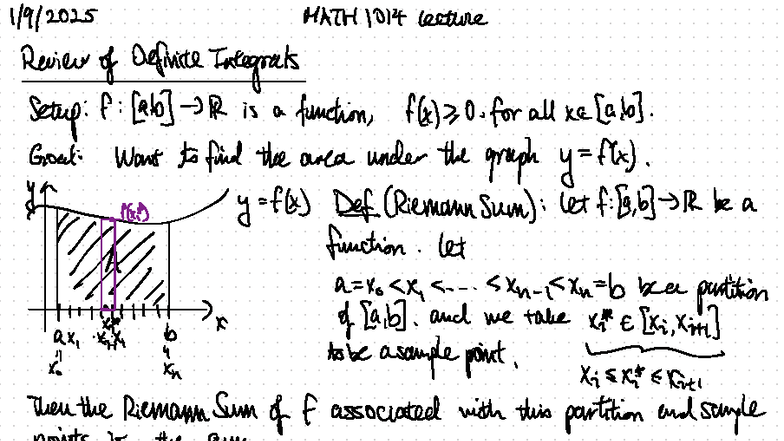 1/9/2025 MATH 1014 Lecture
Review of Definite Integrals
Setup: f: [a,b] → ℝ is a function, f(x) ≥ 0 for all x ∈ [a,b].
Goal: Want to find the area under the graph y = f(x).
y
y = f(x)
x
a x₁ b
x₀ xₙ
Def (Riemann Sum): Let f: [a,b] → ℝ be a
function. Let
a = x₀ < x₁ < .... < xₙ₋₁ < xₙ = b be a partition
of [a,b], and we take xᵢ* ∈ [xᵢ, xᵢ₊₁]
to be a sample point.
xᵢ ≤ xᵢ* ≤ xᵢ₊₁
Then the Riemann Sum of f associated with this partition and sample
points is the sum